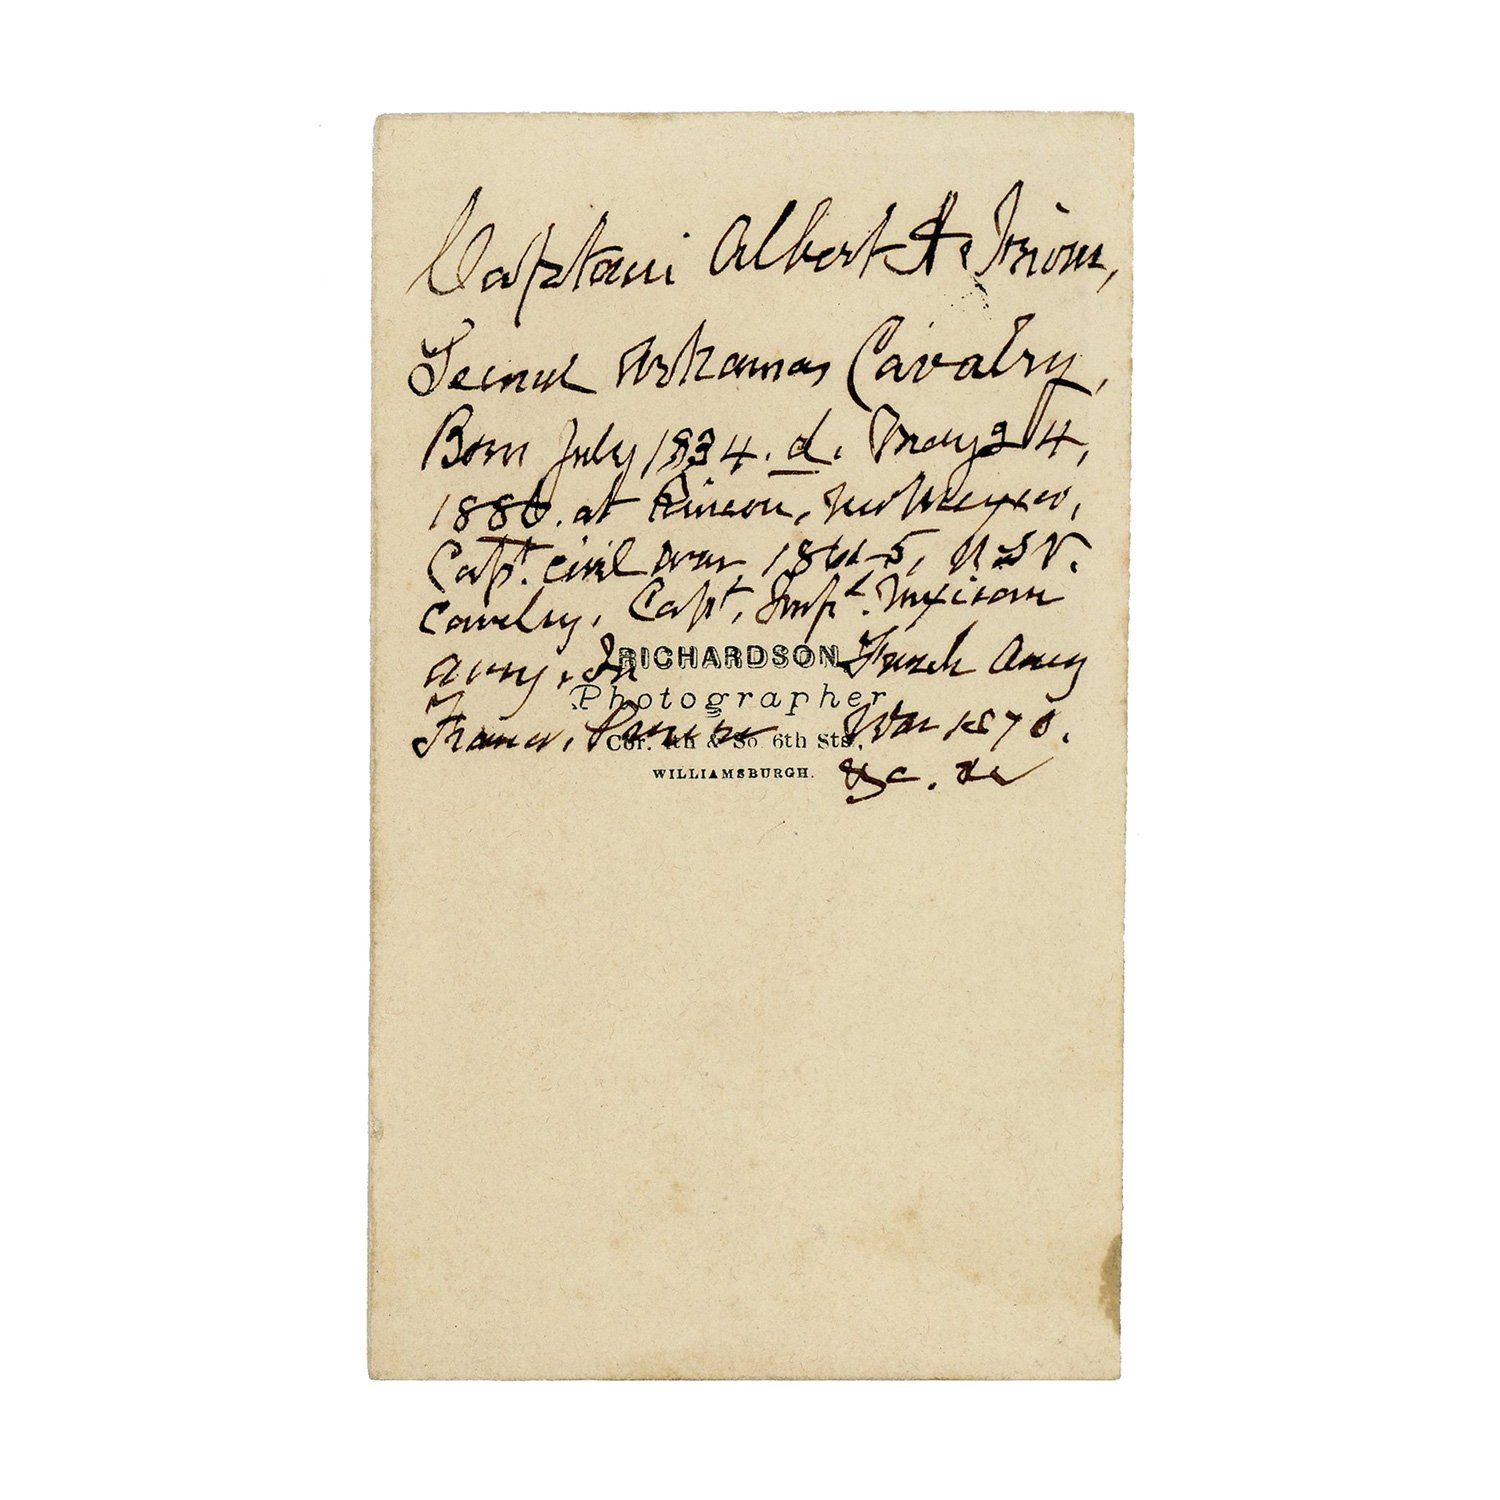 Captain Albert
Second Arkansas Cavalry,
Born July 1834. d. May 24,
1886. at Rincon, New Mexico,
Capt. civil war 1861-5, U.S.V.
Cavelry, Capt, Impl. Mexican
army, In French Army
France, War 1870.
&c. &c
RICHARDSON
Photographer
Cor. 4th & So 6th Sts.,
WILLIAMSBURGH.